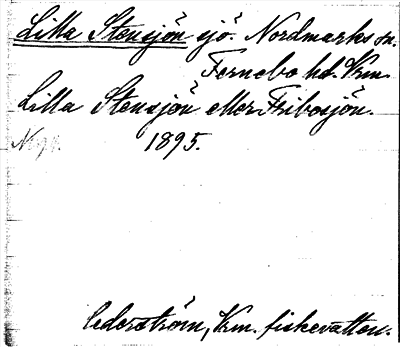 Lilla Stensjön sjö. Nordmarks sn.
Fernebo hd. Vrm.
Lilla Stensjön eller Fribosjön.
1895.
Cederström, Vrm. fiskevatten.